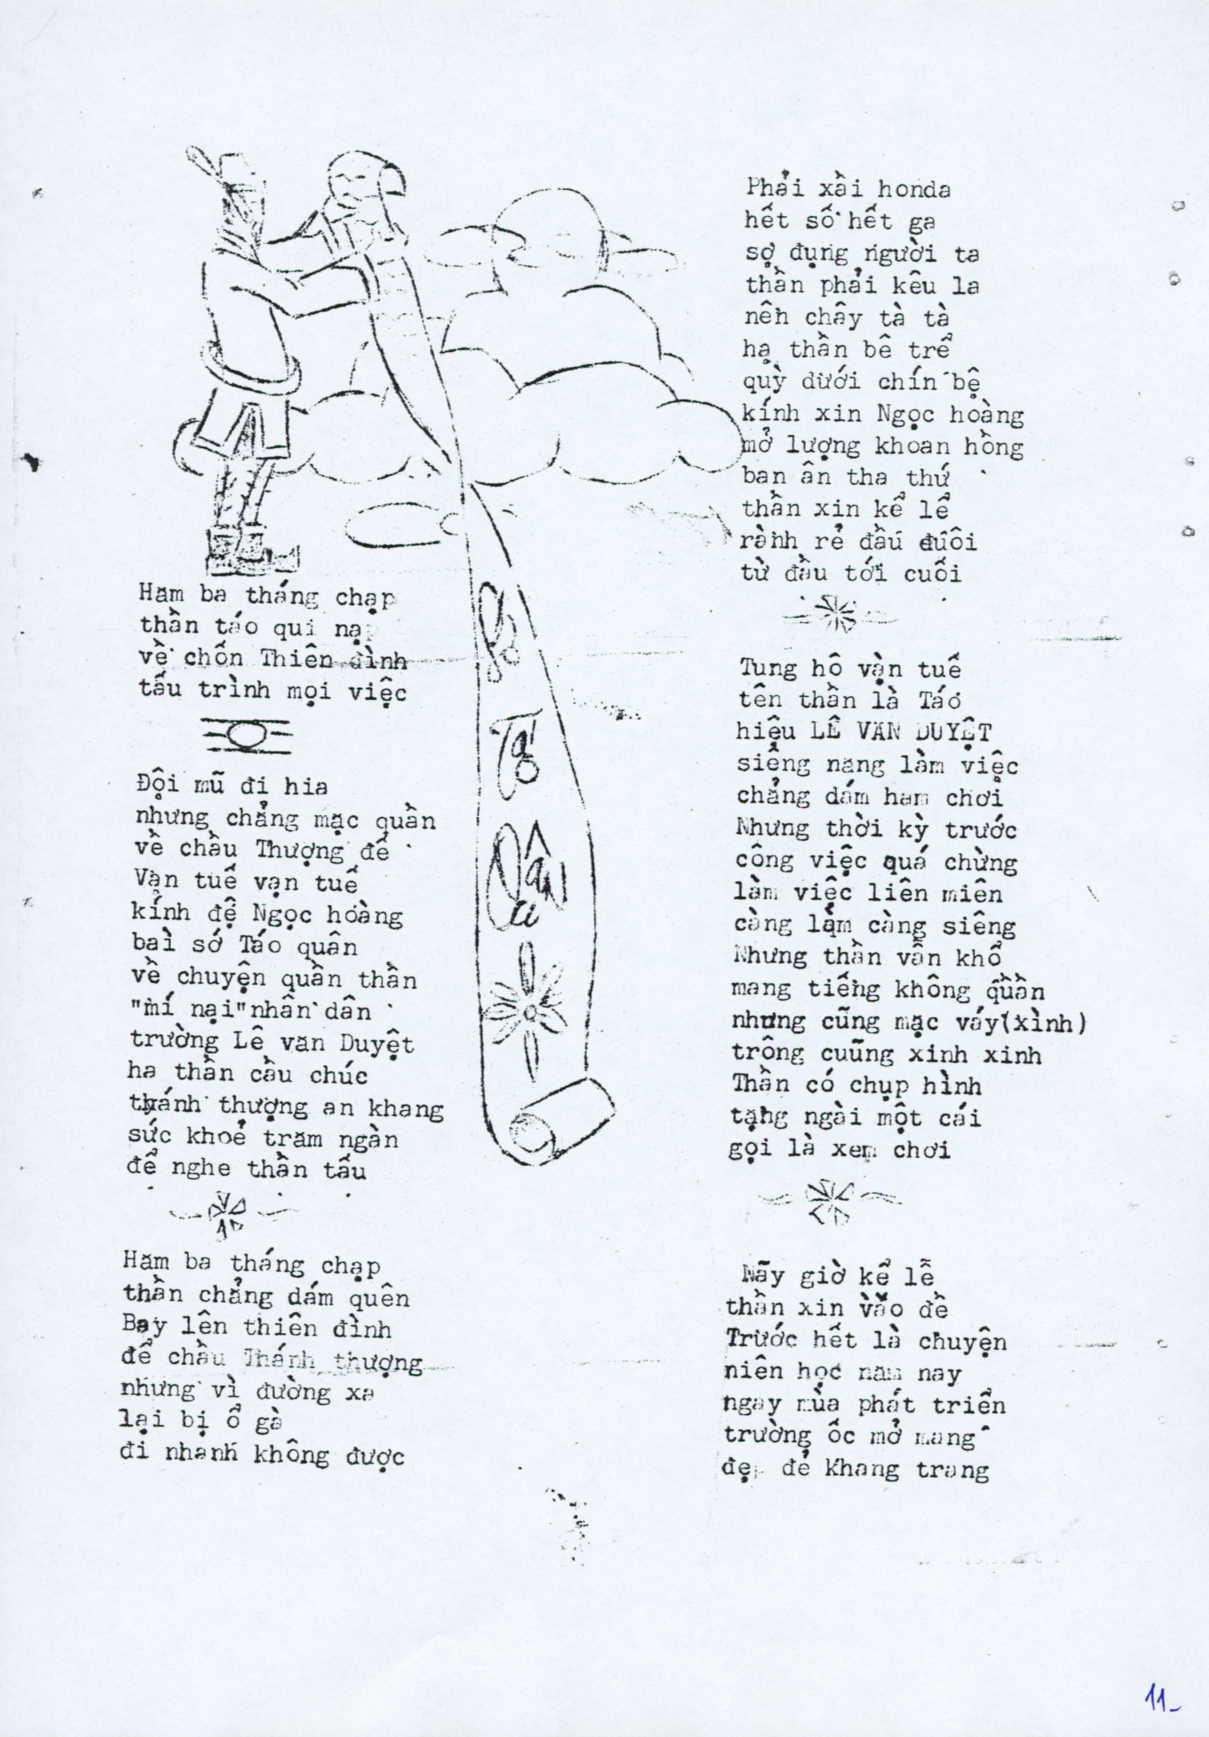 Sớ
Táo
Quân
Hăm ba tháng chạp
thần táo qui nạp
về chốn Thiên đình
tấu trình mọi việc
Đội mũ đi hia
nhưng chẳng mặc quần
về chầu Thượng đế
Vạn tuế vạn tuế
kính đệ Ngọc hoàng
bài sớ Táo quân
về chuyện quần thần
"mí nại" nhân dân
trường Lê văn Duyệt
hạ thần cầu chúc
thánh thượng an khang
sức khoẻ trăm ngàn
để nghe thần tấu
Hăm ba tháng chạp
thần chẳng dám quên
Bay lên thiên đình
để chầu Thánh thượng
nhưng vì đường xa
lại bị ổ gà
đi nhanh không được
Phải xài honda
hết số hết ga
sợ đụng người ta
thần phải kêu la
nên chây tà tà
hạ thần bê trể
quỳ dưới chín bệ
kính xin Ngọc hoàng
mở lượng khoan hồng
ban ân tha thứ
thần xin kể lể
rành rẻ đầu đuôi
từ đầu tới cuối
Tung hô vạn tuế
tên thần là Táo
hiệu LÊ VĂN DUYỆT
siêng năng làm việc
chẳng dám ham chơi
Nhưng thời kỳ trước
công việc quá chừng
làm việc liên miên
càng làm càng siêng
Nhưng thần vẫn khổ
mang tiếng không quần
nhưng cũng mặc váy(xình)
trông cuũng xinh xinh
Thần có chụp hình
tặng ngài một cái
gọi là xem chơi
Nãy giờ kể lễ
thần xin vào đề
Trước hết là chuyện
niên học năm nay
ngay mùa phát triển
trường ốc mở mang
đẹp đẻ khang trang
11-